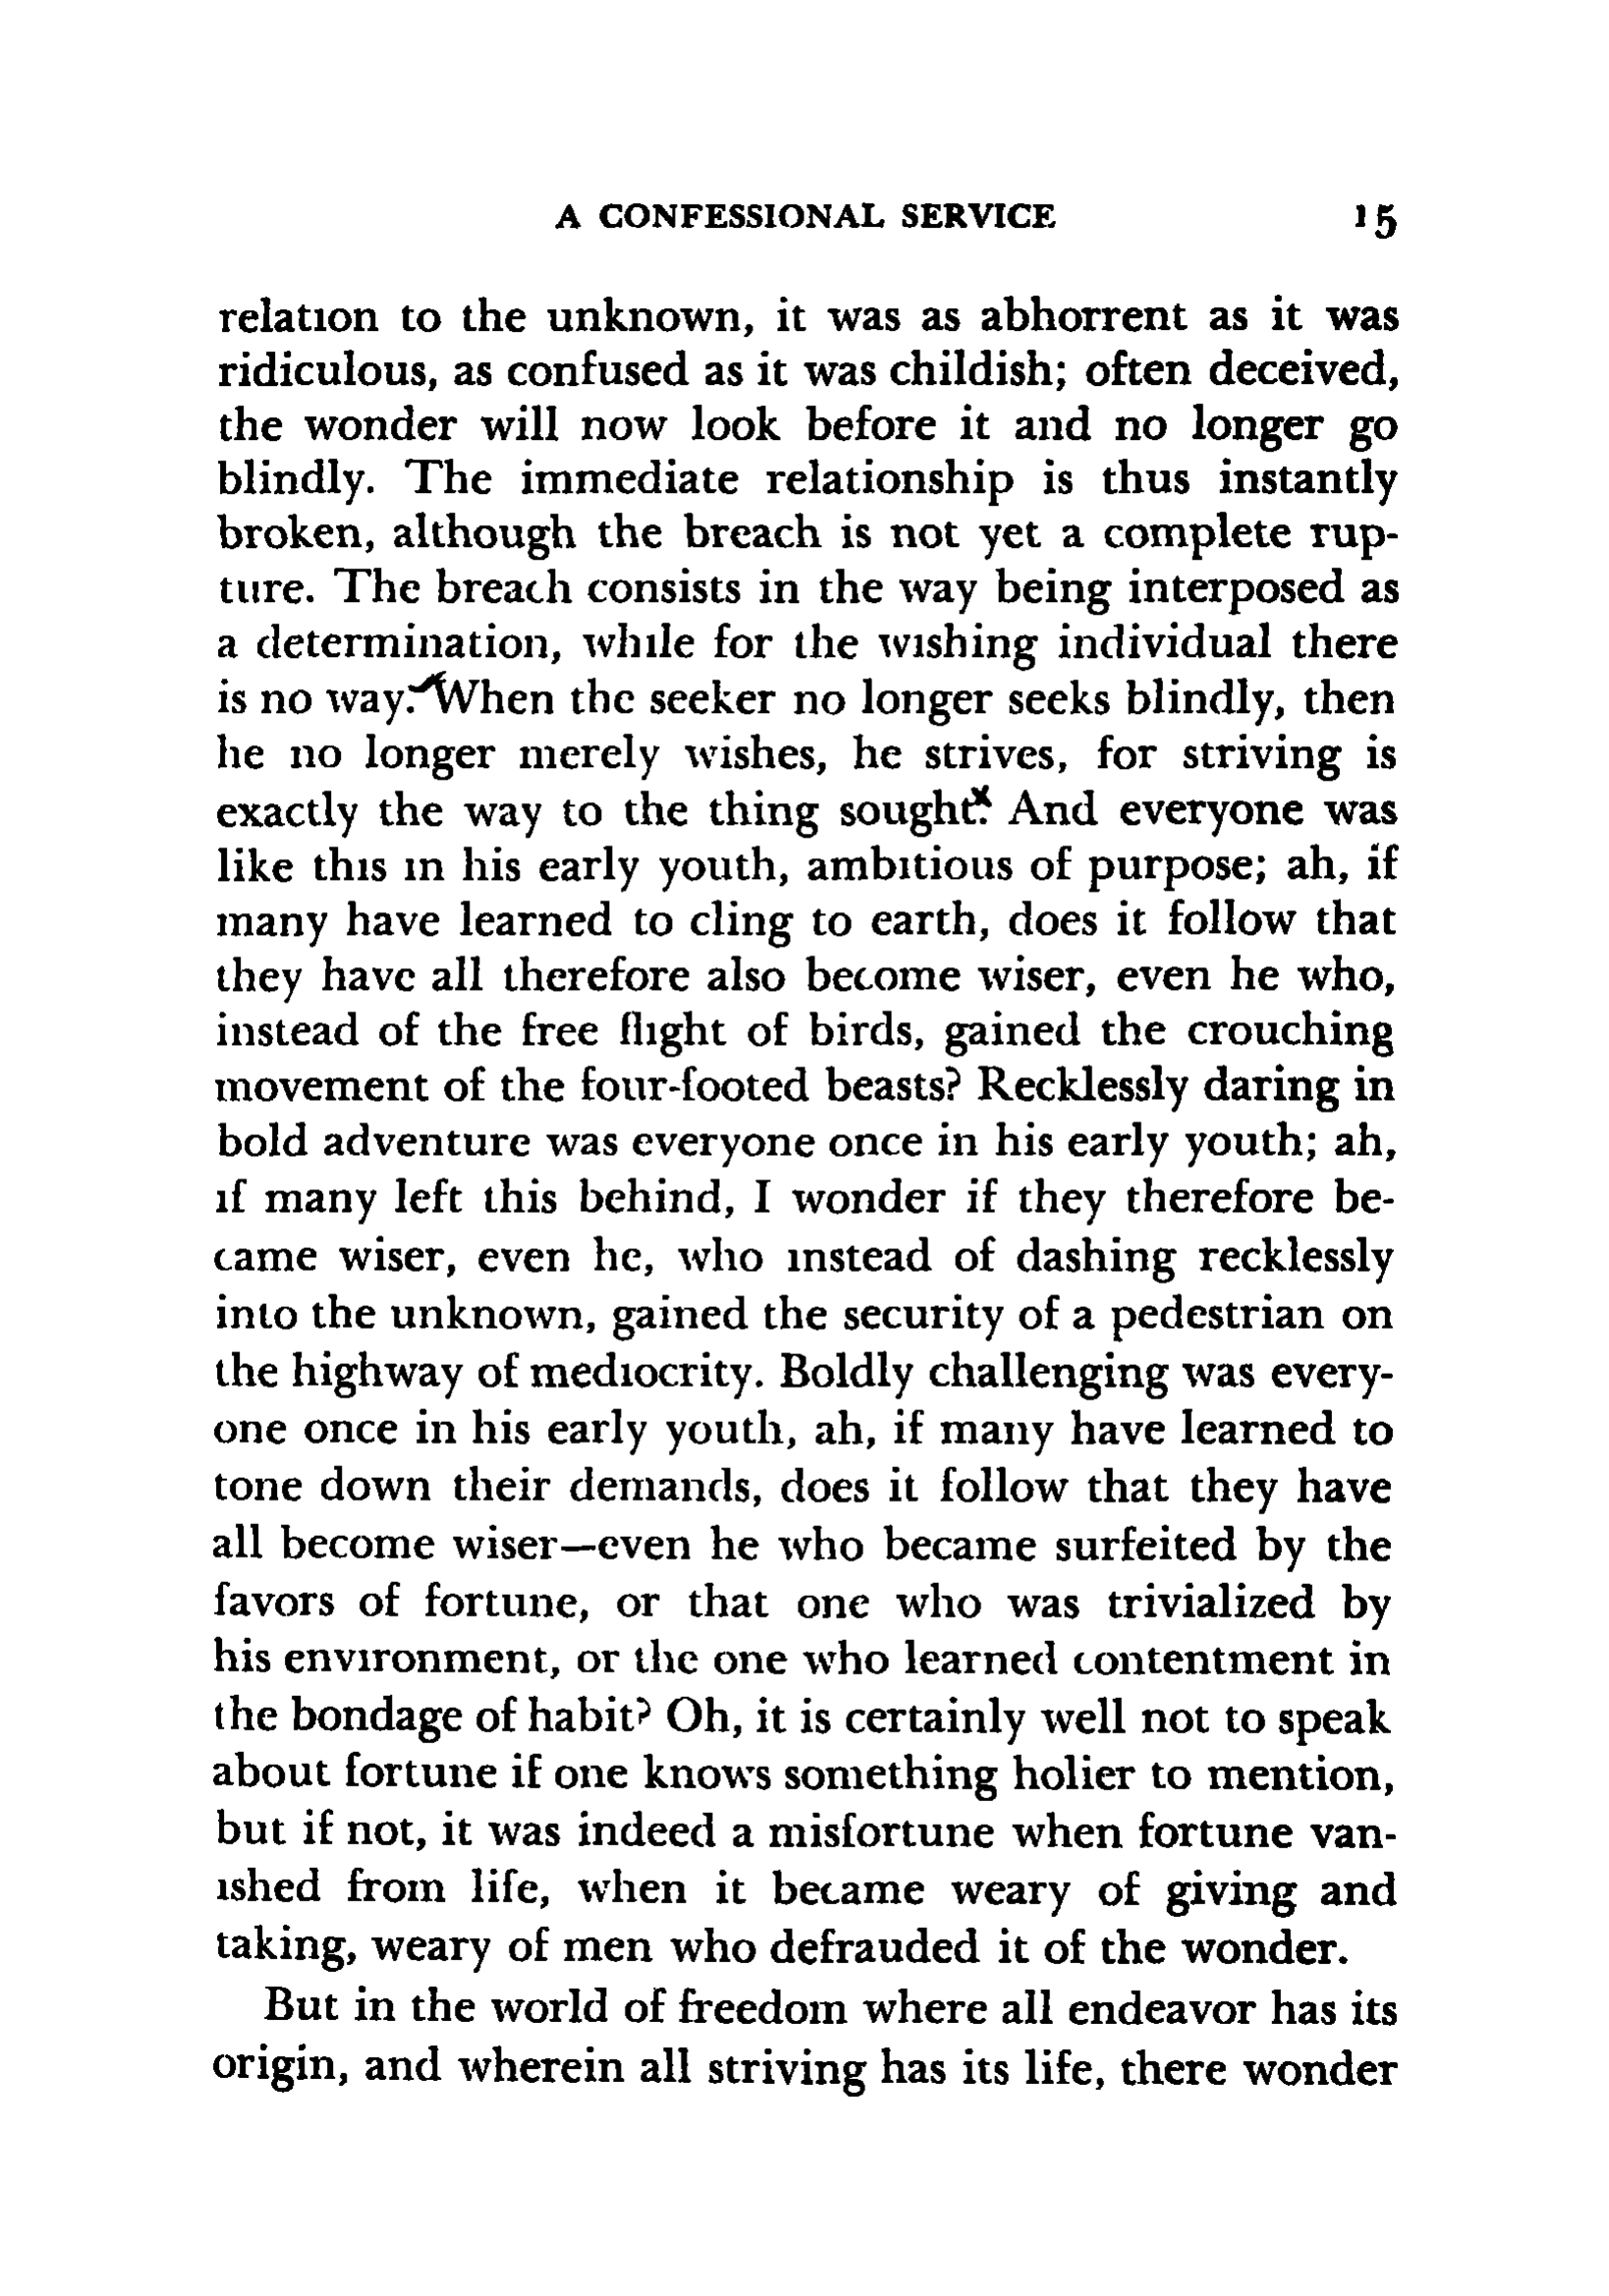 A CONFESSIONAL SERVICE 15
relation to the unknown, it was as abhorrent as it was
ridiculous, as confused as it was childish; often deceived,
the wonder will now look before it and no longer go
blindly. The immediate relationship is thus instantly
broken, although the breach is not yet a complete rup-
ture. The breach consists in the way being interposed as
a determination, while for the wishing individual there
is no way. When the seeker no longer seeks blindly, then
he no longer merely wishes, he strives, for striving is
exactly the way to the thing sought. And everyone was
like this in his early youth, ambitious of purpose; ah, if
many have learned to cling to earth, does it follow that
they have all therefore also become wiser, even he who,
instead of the free flight of birds, gained the crouching
movement of the four-footed beasts? Recklessly daring in
bold adventure was everyone once in his early youth; ah,
if many left this behind, I wonder if they therefore be-
came wiser, even he, who instead of dashing recklessly
into the unknown, gained the security of a pedestrian on
the highway of mediocrity. Boldly challenging was every-
one once in his early youth, ah, if many have learned to
tone down their demands, does it follow that they have
all become wiser—even he who became surfeited by the
favors of fortune, or that one who was trivialized by
his environment, or the one who learned contentment in
the bondage of habit? Oh, it is certainly well not to speak
about fortune if one knows something holier to mention,
but if not, it was indeed a misfortune when fortune van-
ished from life, when it became weary of giving and
taking, weary of men who defrauded it of the wonder.
But in the world of freedom where all endeavor has its
origin, and wherein all striving has its life, there wonder